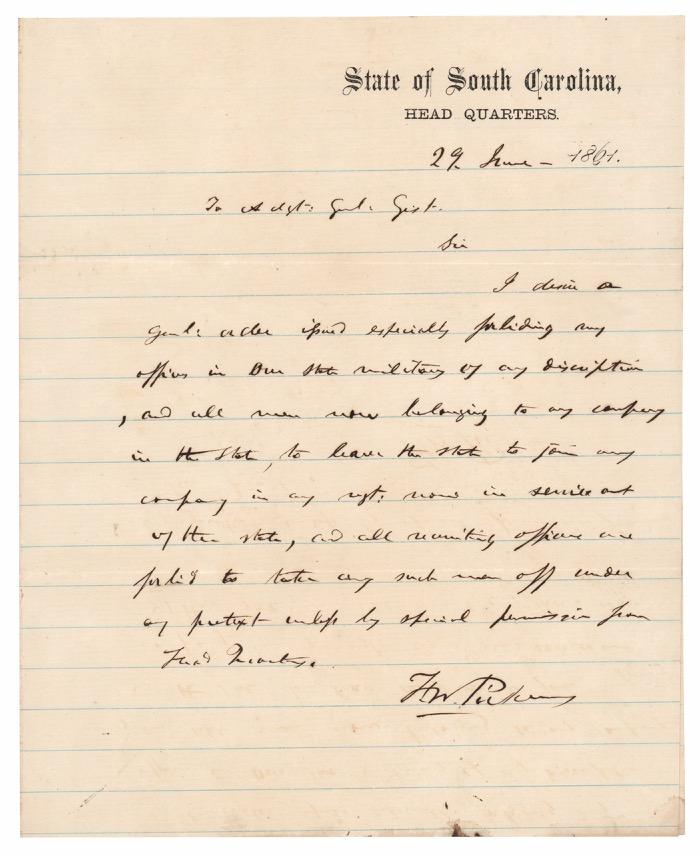 State of South Carolina,
HEAD QUARTERS.
29 June - 1861.
To Adgt: Genl: Gist.
Sir
I desire a
genl: order issued especially forbiding any
officer in our state military of any discription
, and all men now belonging to any company
in the State, to leave the state to join any
company in any regt: now in service out
of the state, and all recruiting officers are
forbid to take any such men off under
any pretext unless by special permission from
Head Quarters.
F W. Pickens